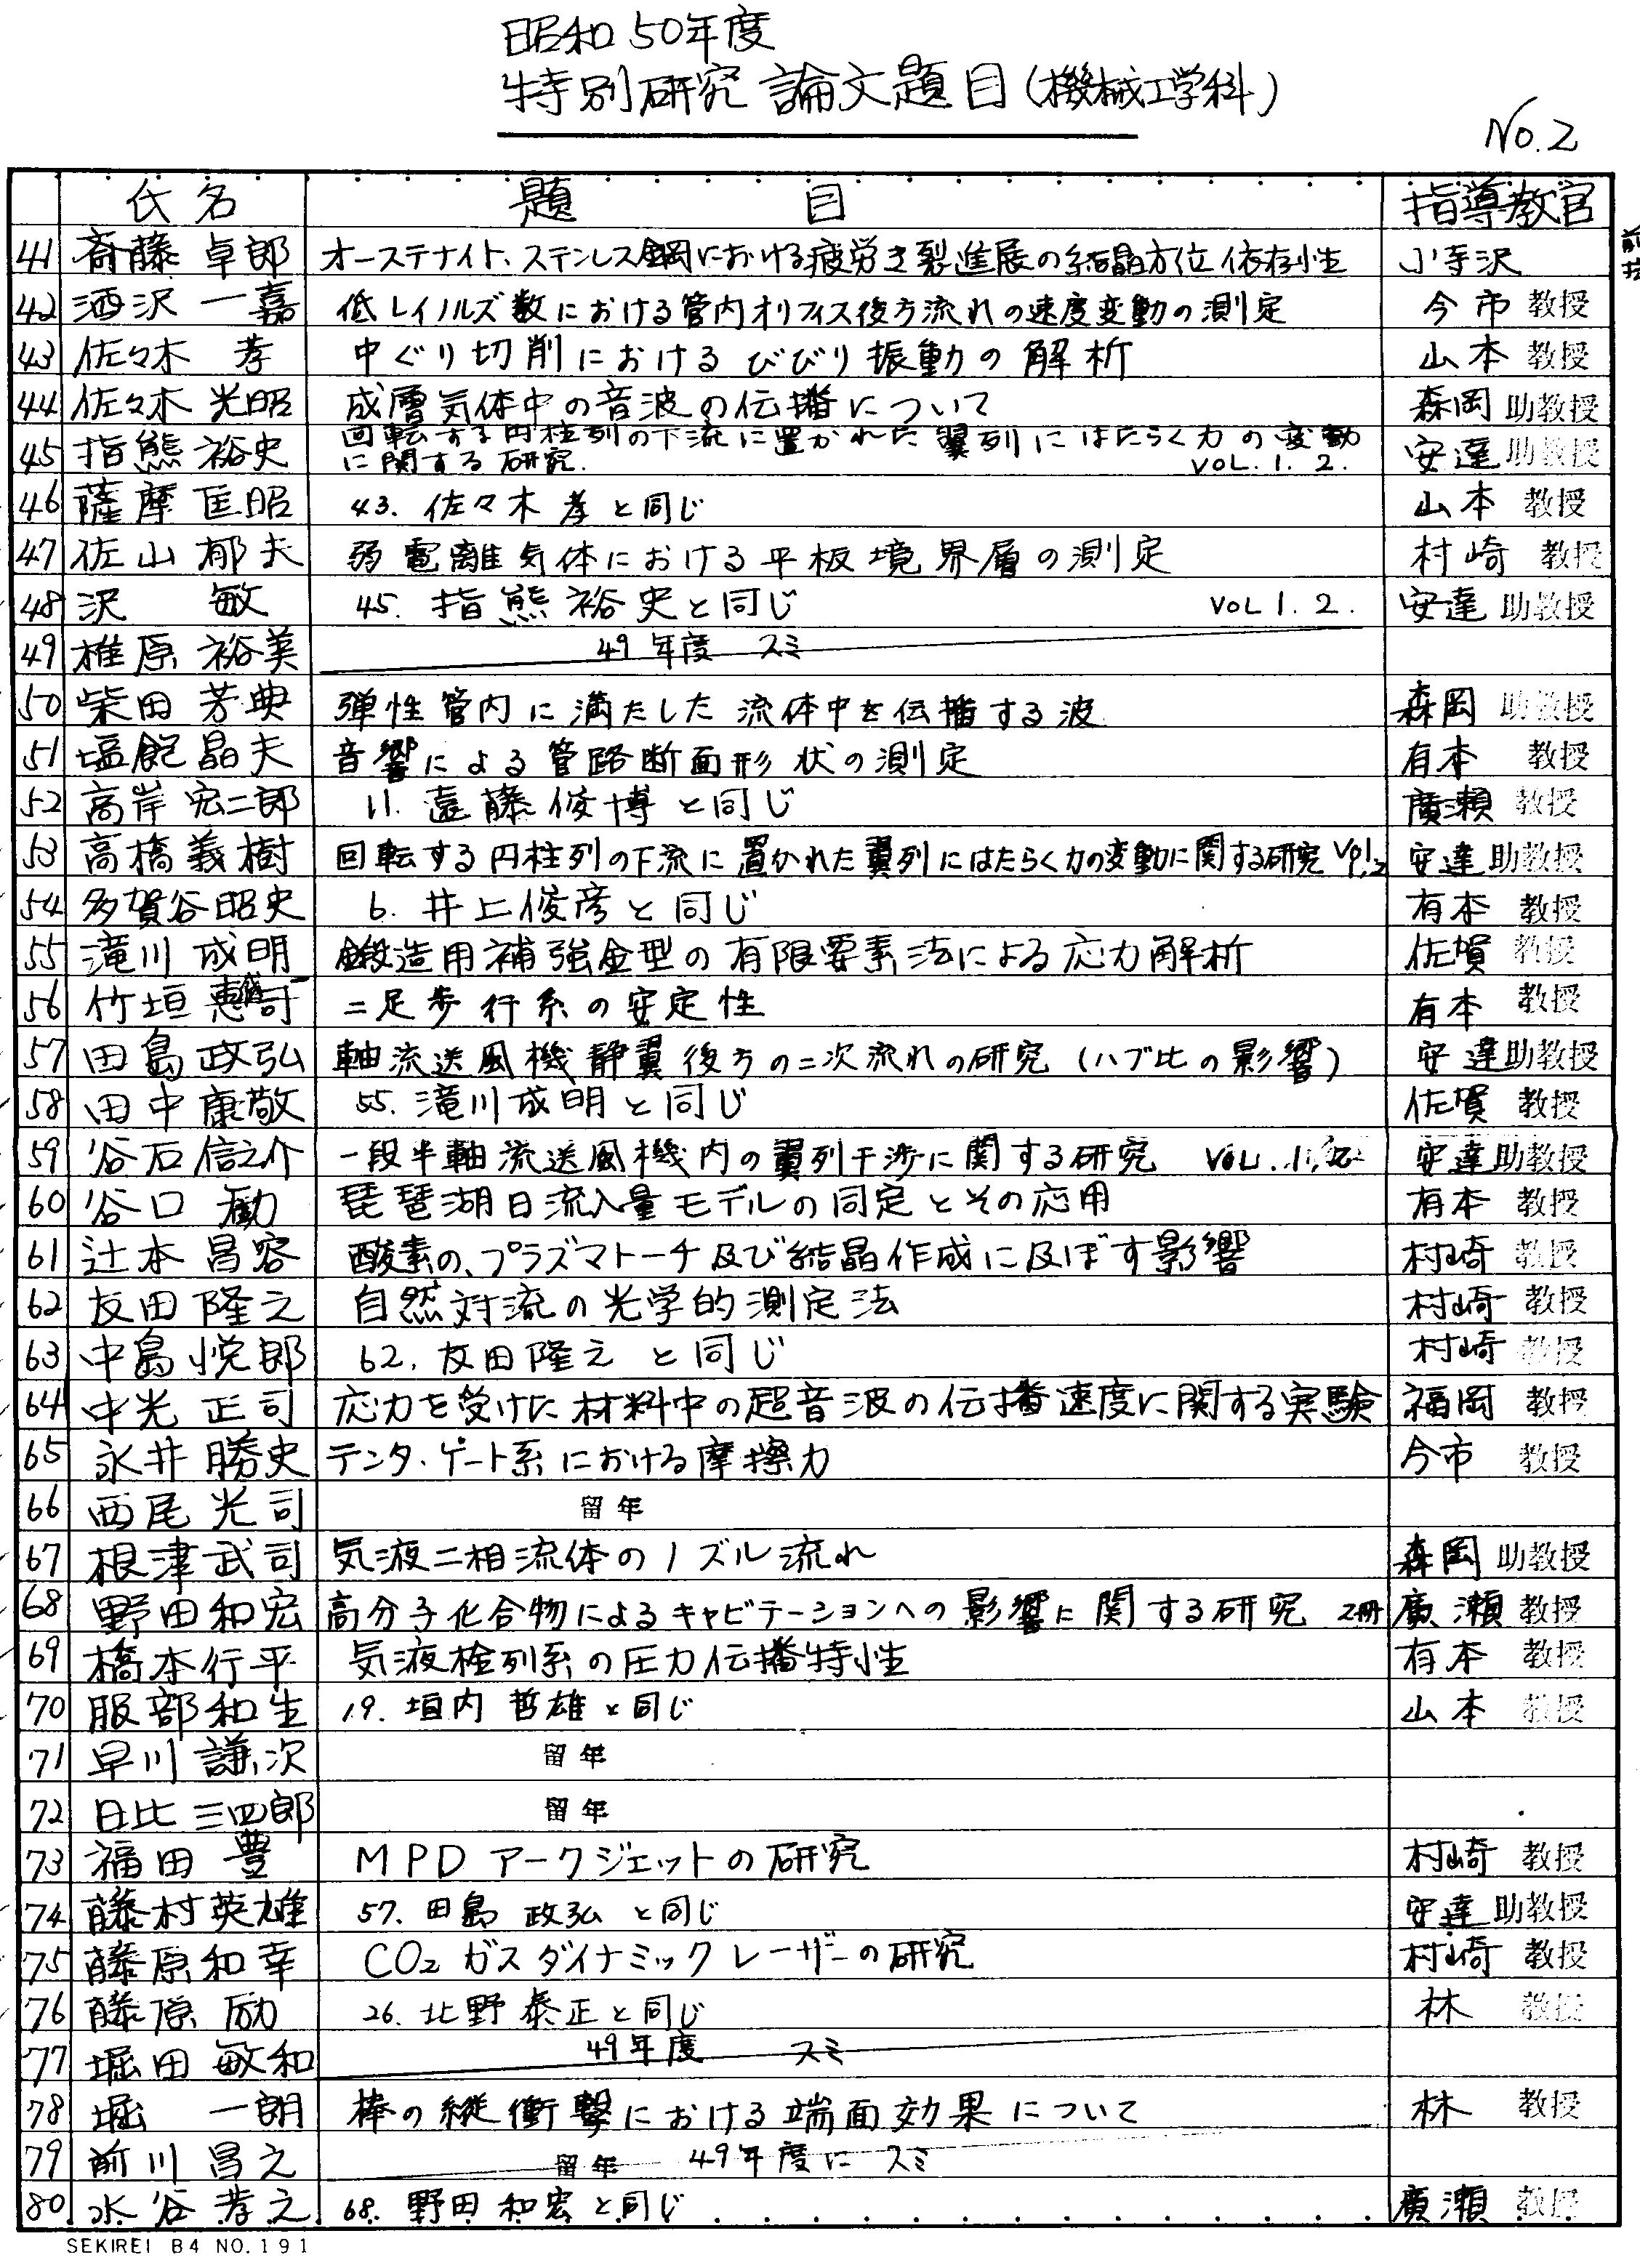 昭和50年度
特別研究論文題目(機械工学科)
No.2
氏名 題目 指導教官
41 斎藤 卓郎 オーステナイト、ステンレス鋼における疲労き裂進展の結晶方位依存性 小寺沢
42 洒沢 一嘉 低レイノルズ数における管内オリフィス後方流れの速度変動の測定 今市 教授
43 佐々木 孝 中ぐり切削におけるびびり振動の解析 山本 教授
44 佐々木 光昭 成層気体中の音波の伝播について 森岡 助教授
45 指熊 裕史 回転する円柱列の下流に置かれた翼列にはたらく力の変動
に関する研究. VOL. 1. 2. 安達 助教授
46 薩摩 匡昭 43. 佐々木 孝と同じ 山本 教授
47 佐山 郁夫 弱電離気体における平板境界層の測定 村崎 教授
48 沢 敏 45. 指熊 裕史と同じ VOL 1. 2. 安達 助教授
49 椎原 裕美 49年度 スミ
50 柴田 芳典 弾性管内に満たした流体中を伝播する波 森岡 助教授
51 塩飽 晶夫 音響による管路断面形状の測定 有本 教授
52 高岸 宏二郎 11. 遠藤俊博と同じ 廣瀬 教授
53 高橋 義樹 回転する円柱列の下流に置かれた翼列にはたらく力の変動に関する研究 Vol.1,2 安達 助教授
54 多賀谷 昭史 6. 井上俊彦と同じ 有本 教授
55 滝川 成明 鍛造用補強金型の有限要素法による応力解析 佐賀 教授
56 竹垣 二足歩行系の安定性 有本 教授
57 田島 政弘 軸流送風機静翼後方の二次流れの研究(ハブ比の影響) 安達 助教授
58 田中 康敬 55. 滝川成明と同じ 佐賀 教授
59 谷石 信之介 一段半軸流送風機内の翼列干渉に関する研究 VOL. 1, 2 安達 助教授
60 谷口 勸 琵琶湖日流入量モデルの同定とその応用 有本 教授
61 辻本 昌容 酸素の、プラズマトーチ及び結晶作成に及ぼす影響 村崎 教授
62 友田 隆之 自然対流の光学的測定法 村崎 教授
63 中島 悦郎 62. 友田隆之と同じ 村崎 教授
64 中光 正司 応力を受けた材料中の超音波の伝播速度に関する実験 福岡 教授
65 永井 勝史 テンタ・ゲート系における摩擦力 今市 教授
66 西尾 光司 留年
67 根津 武司 気液二相流体のノズル流れ 森岡 助教授
68 野田 和宏 高分子化合物によるキャビテーションへの影響に関する研究 2冊 廣瀬 教授
69 橋本 行平 気液栓列系の圧力伝播特性 有本 教授
70 服部 和生 19. 垣内 哲雄と同じ 山本 教授
71 早川 謙次 留年
72 日比 三四郎 留年
73 福田 豊 MPDアークジェットの研究 村崎 教授
74 藤村 英雄 57. 田島 政弘 と同じ 安達 助教授
75 藤原 和幸 CO₂ガスダイナミックレーザーの研究 村崎 教授
76 藤原 励 26. 北野 泰正と同じ 林 教授
77 堀田 敏和 49年度 スミ
78 堀 一朗 棒の縦衝撃における端面効果について 林 教授
79 前川 昌之 留年 49年度に スミ
80 水谷 孝之 68. 野田 和宏と同じ 廣瀬 教授
SEKIREI B4 NO.191